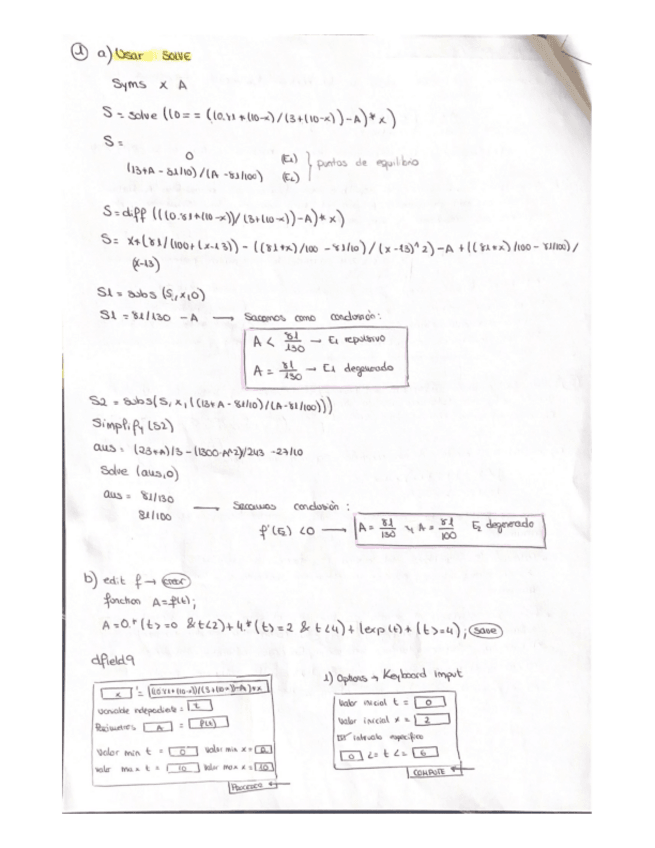 1 a) Usar SOLVE
Syms x A
S = solve ((0 == ((0.81*(10-x)/(3+(10-x))-A)*x)
S =
0 (E1)
(13*A - 81/10)/(A - 81/100) (E2)
puntos de equilibrio
S = diff (((0.81*(10-x))/(3+(10-x))-A)*x)
S = x*(81/(100*(x-13)) - ((81*x)/100 - 81/10)/(x-13)^2) - A + ((81*x)/100 - 81/100)/
(x-13)
S1 = subs (S,x,0)
S1 = 81/130 - A → Sacamos como conclusión:
A < 81/130 → E1 repulsivo
A = 81/130 → E1 degenerado
S2 = subs(S, x, ((13*A - 81/10)/(A-81/100)))
Simplify (S2)
aus = (23*A)/3 - (1300*A^2)/243 - 27/10
Solve (aus,0)
aus = 81/130
81/100
→ Sacamos conclusión :
f'(E2) <0 → A = 81/130 y A = 81/100 E2 degenerado
b) edit f → enter
function A = f(t);
A = 0.*(t>=0 & t<2) + 4.*(t>=2 & t<4) + (exp(t)*(t>=4); save
dfield9
x ' = ((0.81*(10-x))/(3+(10-x))-A)*x
Variable independiente = t
Parámetros A = f(t)
Valor min t = 0 Valor min x = 0
Valor max t = 10 Valor max x = 10
PROCEED
1) Options → Keyboard input
Valor inicial t = 0
Valor inicial x = 2
intervalo específico
0 <= t <= 6
COMPUTE